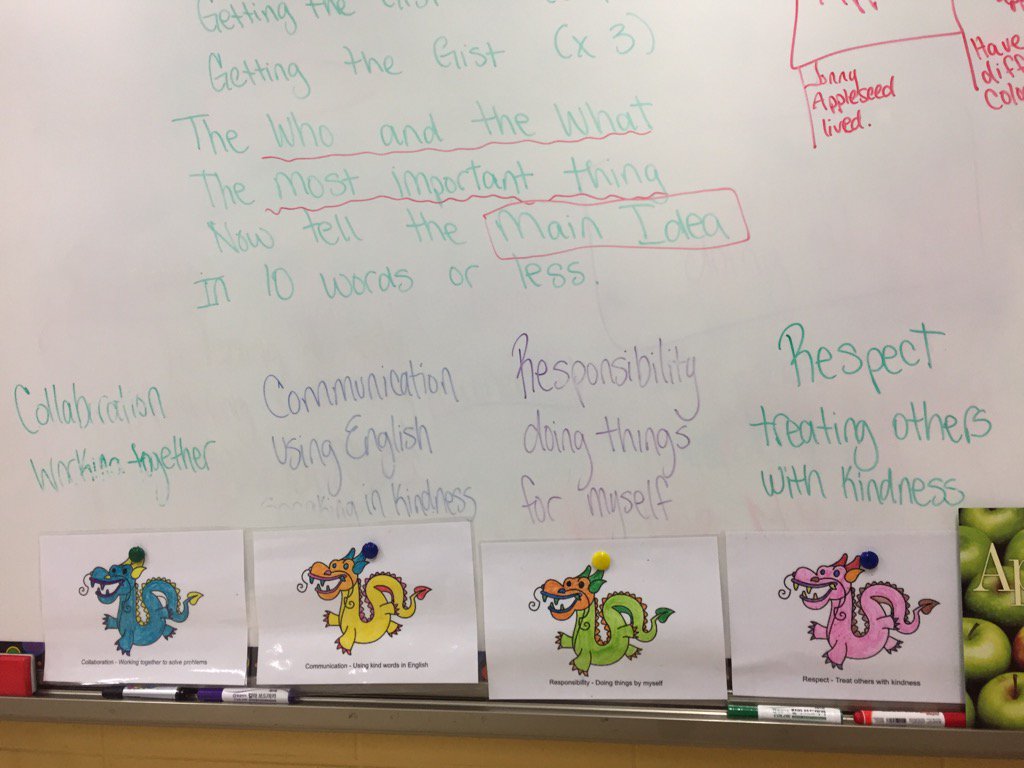 Getting the Gist
Getting the Gist (x 3)
The Who and the What
The most important thing
Now tell the Main Idea
In 10 words or less.
Appleseed
lived.
Have
diff
Colo
Collaboration
working together
Communication
using English
speaking in kindness
Responsibility
doing things
for myself
Respect
treating others
with kindness
Collaboration - Working together to solve problems
Communication - Using kind words in English
Responsibility - Doing things by myself
Respect - Treat others with kindness
Ap